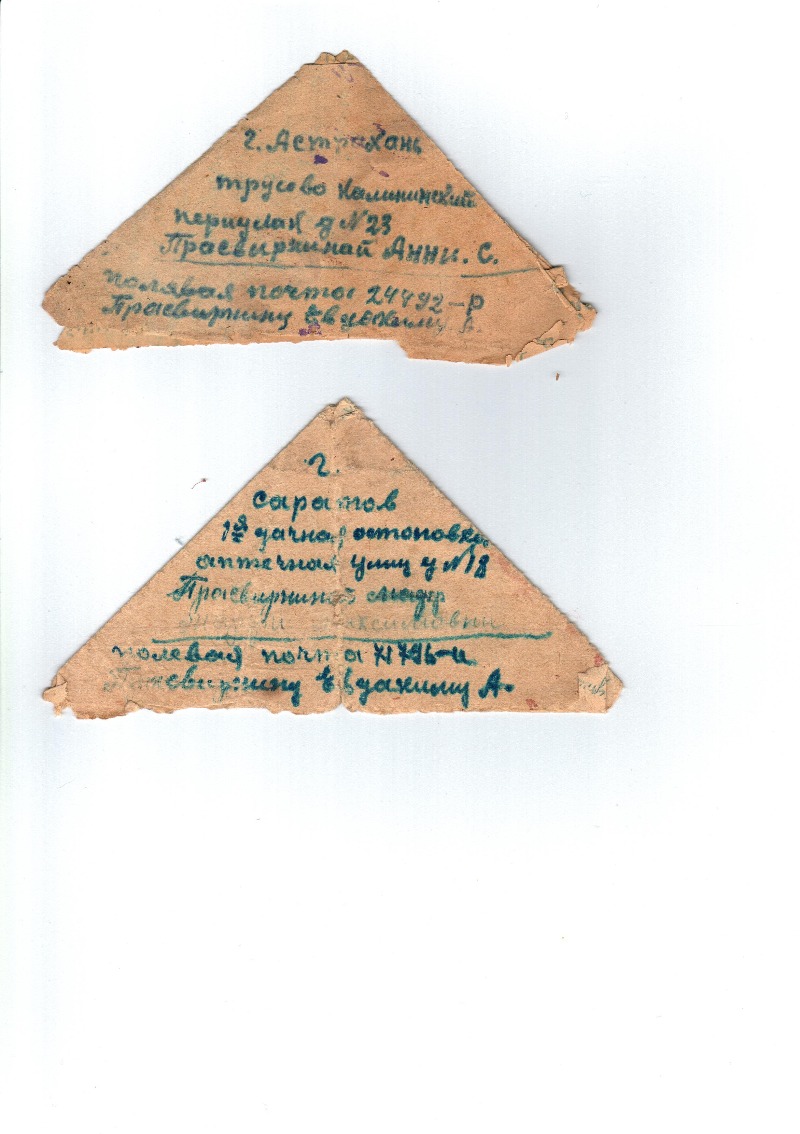 г. Астрахань
трусово Калининский
периулак д N 23
Прасвиркиной Анни. С.
полявая почта 24492-р
Прасвиркину Евдокиму А.
г.
Саратов
1я дачная остоповка
аптечная улиц д N 18
Прасвиркиной
полевая почта
Евдахиму А.